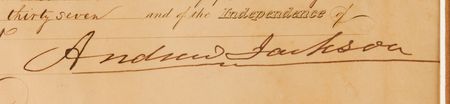 thirty seven and of the Independence of
Andrew Jackson